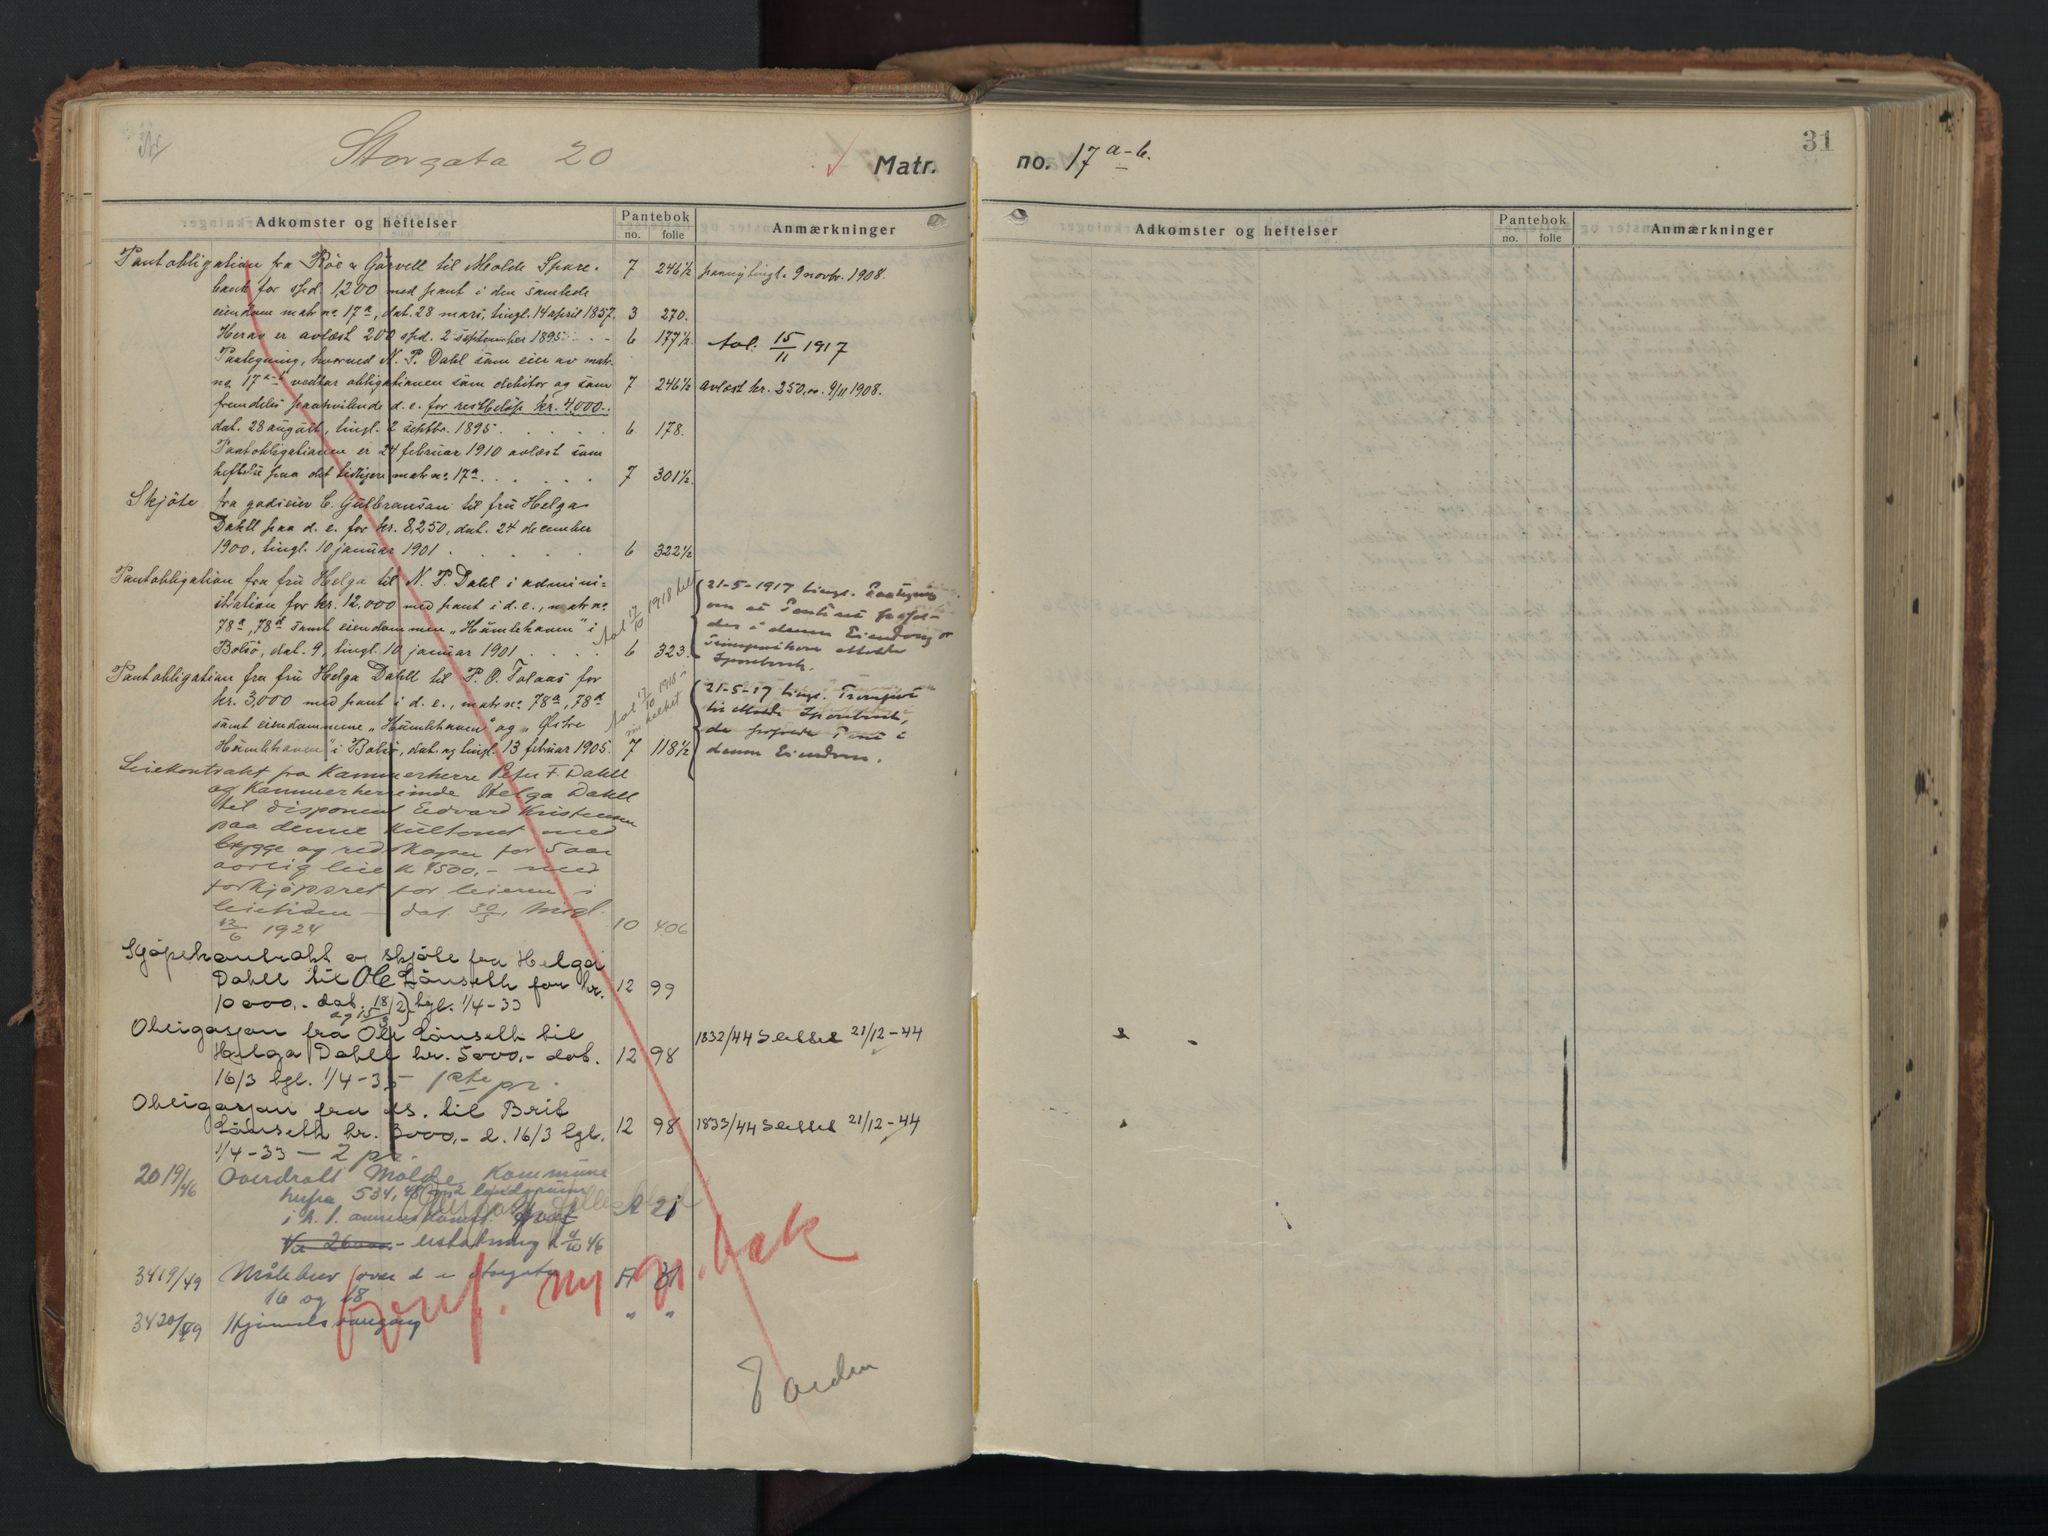 Storgata 20
Matr. no. 17 a-b.
31
Adkomster og heftelser
Pantebok
no. folie
Anmærkninger
Adkomster og heftelser
Pantebok
no. folie
Anmærkninger
Pantobligation fra Röe & Görvell til Molde Spare- 7 246½ panny tingl. 9 novbr. 1908.
bank for spd. 1200 med pant i den samlede
eiendom matr no. 17a, dat. 28 mars, tingl. 14 april 1857. 3 270.
Herav er avlæst 200 spd. 2 september 1895 6 177½ Avl. 15/11 1917
Paategning, hvorved N. P. Dahl som eier av matr.
no. 17 a-b vedtar obligationen som debitor og som 7 246½ avlæst kr. 250,00. 9/11 1908.
fremdeles paahvilende d. e. for restbeløp kr. 4,000..
dat. 28 august, tingl. 2 septbr. 1895 6 178.
Pantobligationen er 24 februar 1910 avlæst som
heftelse paa det tidligere matr no. 17a. 7 301½.
Skjöte fra gaardeier C. Gulbransen til frü Helga
Dahll paa d. e. for kr. 8,250, dat. 24 december
1900, tingl. 10 januar 1901 6 322½
Pantobligation fra frü Helga til N. P. Dahl i admini-
stration for kr. 12,000 med pant i d. e., matr no.
78a, 78d samt eiendommen „Humlehaven" i
Bolsö, dat. 9, tingl. 10 januar 1901 6 323.
Avl 17/10 1918
21-5-1917 tingl. Paategning
om at Pantet
i denne Eiendom
Molde
Sparebank.
Pantobligation fra frü Helga Dahll til P. O. Tolaas for
kr. 3,000 med pant i d. e., matr no. 78a, 78d
samt eiendommene „Humlehaven" og „Østre
Humlehaven" i Bolsö, dat. og tingl. 13 februar 1905. 7 118½
Avl 17/10 1918
21-5-17 tingl. Transport
til Molde Sparebank,
Pant i
denne Eiendom.
Leiekontrakt fra Kammerherre Peter F. Dahll
og Kammerherreinde Helga Dahll
til disponent Edvard Kristensen
paa denne med
brygge og redskaper for 5 aar
aarlig leie kr 4500,- med
forkjöpsret for leieren i
leietiden — dat. 30/5, tingl.
12/6 1924 10 406
Kjöpekontrakt og skjöte fra Helga
Dahll til Ole Lönseth for kr. 12 99
10 000,- dat. 18/2 og 15/3 tgl. 1/4-33
Obligasjon fra Ole Lönseth til
Helga Dahll kr. 5000,- dat. 12 98 1832/44 Slettet 21/12-44
16/3 tgl. 1/4-33 — 1ste pr.
Obligasjon fra ds. til Brit
Lönseth kr. 3000,- d. 16/3 tgl. 12 98 1833/44 Slettet 21/12-44
1/4-33 — 2 pr.
2019/46 Overdratt Molde Kommune
534,48 m2
A 21
46
3419/49 Målebrev over d e Storgata A 31
16 og 18
3420/49 Hjemmelsovergang " "
Overf. ny gr. bok